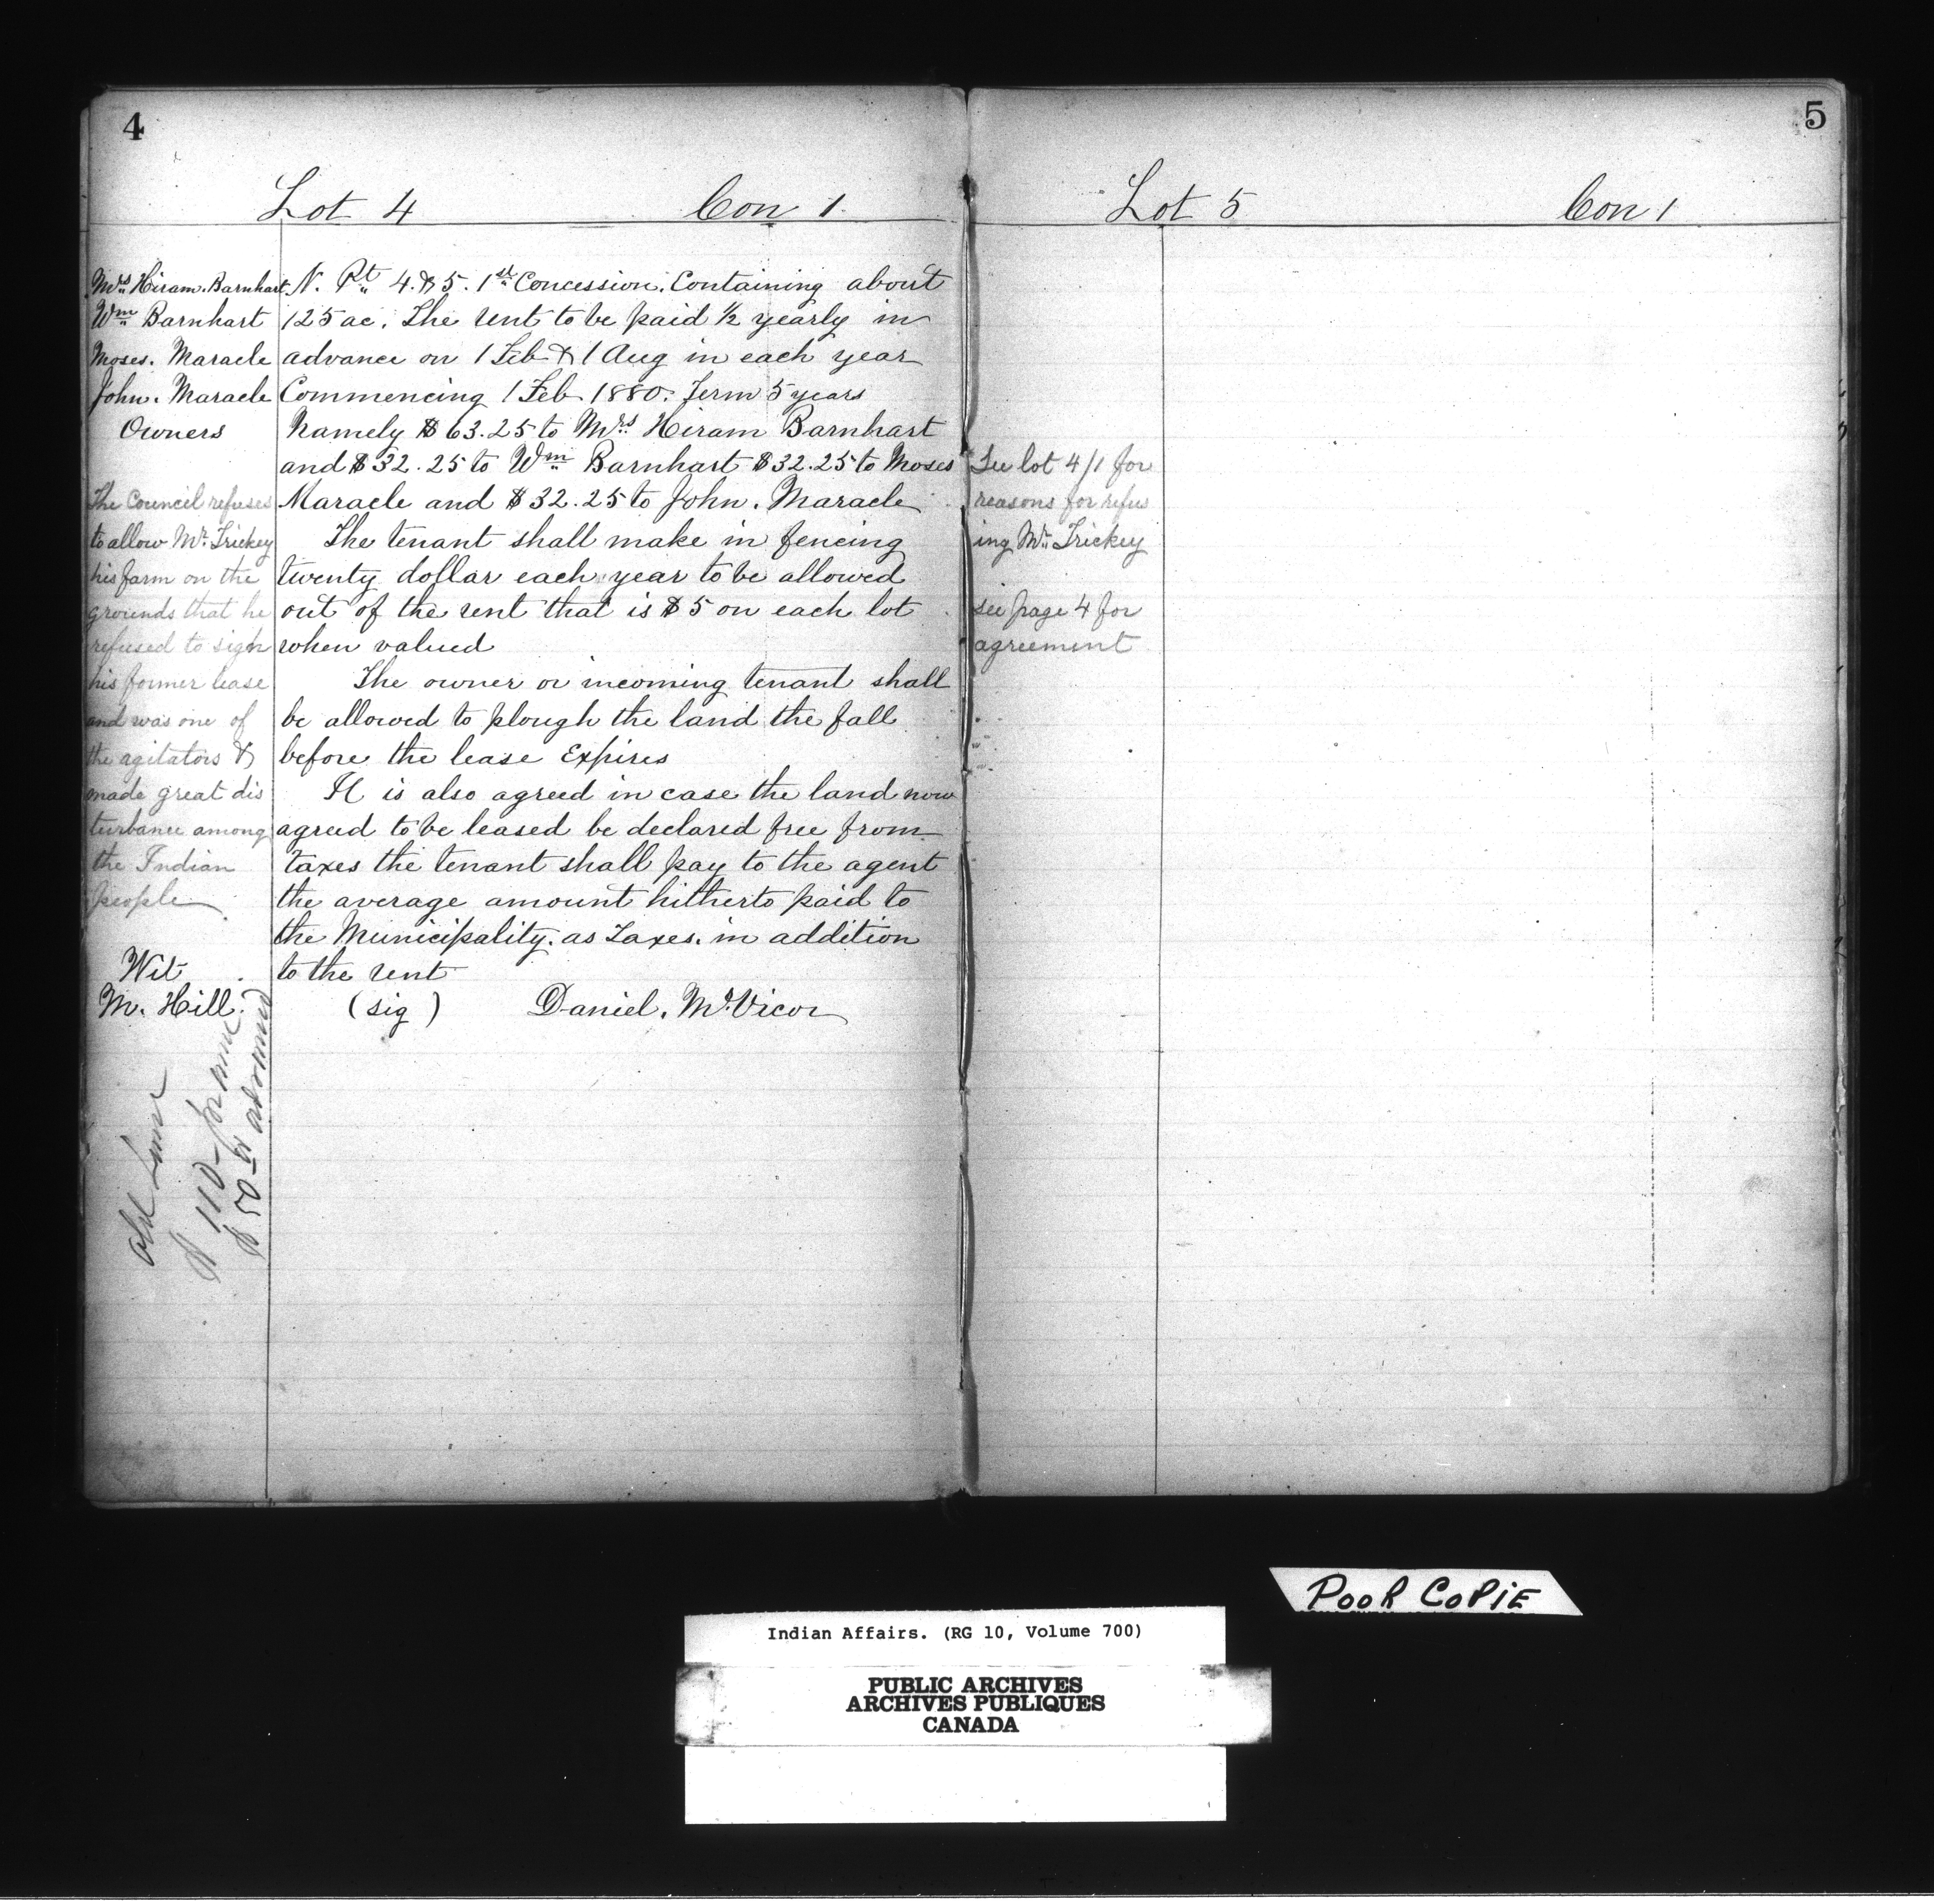 4
Lot 4 Con 1.
Mrs Hiram. Barnhart
Wm Barnhart
Moses. Maracle
John. Maracle
Owners
The Council refuses
to allow Mr. Trickey
his farm on the
grounds that he
refused to sign
his former lease
and was one of
the agitators &
made great dis
turbance among
the Indian
people
Wit
M. Hill.
N. Pt 4. & 5. 1st Concession. Containing about
125 ac. The rent to be paid ½ yearly in
advance on 1 Feb & 1 Aug in each year
Commencing 1 Feb 1880. Term 5 years
Namely $63.25 to Mrs Hiram Barnhart
and $32.25 to Wm Barnhart $32.25 to Moses
Maracle and $32.25 to John. Maracle
The tenant shall make in fencing
twenty dollar each year to be allowed
out of the rent that is $5 on each lot
when valued
The owner or incoming tenant shall
be allowed to plough the land the fall
before the lease Expires
It is also agreed in case the land now
agreed to be leased be declared free from
taxes the tenant shall pay to the agent
the average amount hitherto paid to
the Municipality. as Taxes. in addition
to the rent
(sig) Daniel. McVicor
Old
$110 –
$50 –
5
Lot 5 Con 1
See lot 4/1 for
reasons for refus
ing Mr. Trickey
see page 4 for
agreement
POOR COPIE
Indian Affairs. (RG 10, Volume 700)
PUBLIC ARCHIVES
ARCHIVES PUBLIQUES
CANADA